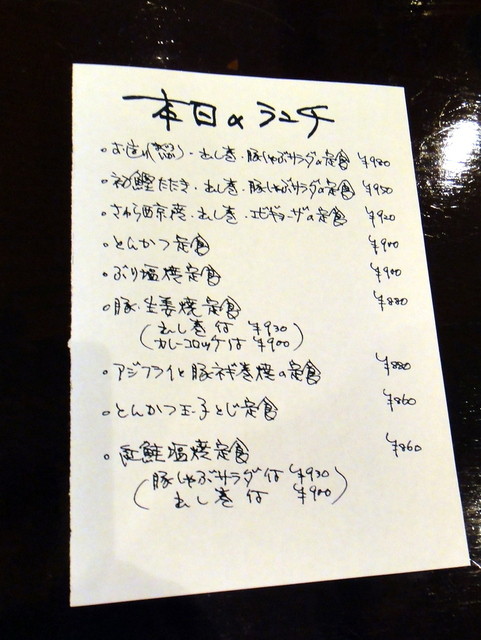 本日のランチ
・お造り(3点)・出し巻・豚しゃぶサラダの定食 ¥980
・初鰹たたき・出し巻・豚しゃぶサラダの定食 ¥950
・さわら西京焼・出し巻・エビギョーザの定食 ¥920
・とんかつ定食 ¥900
・ぶり塩焼定食 ¥900
・豚・生姜焼定食 ¥880
(出し巻付 ¥930
カレーコロッケ付 ¥900)
・アジフライと豚ネギ巻焼の定食 ¥880
・とんかつ玉子とじ定食 ¥860
・紅鮭塩焼定食 ¥860
(豚しゃぶサラダ付 ¥930
出し巻付 ¥900)